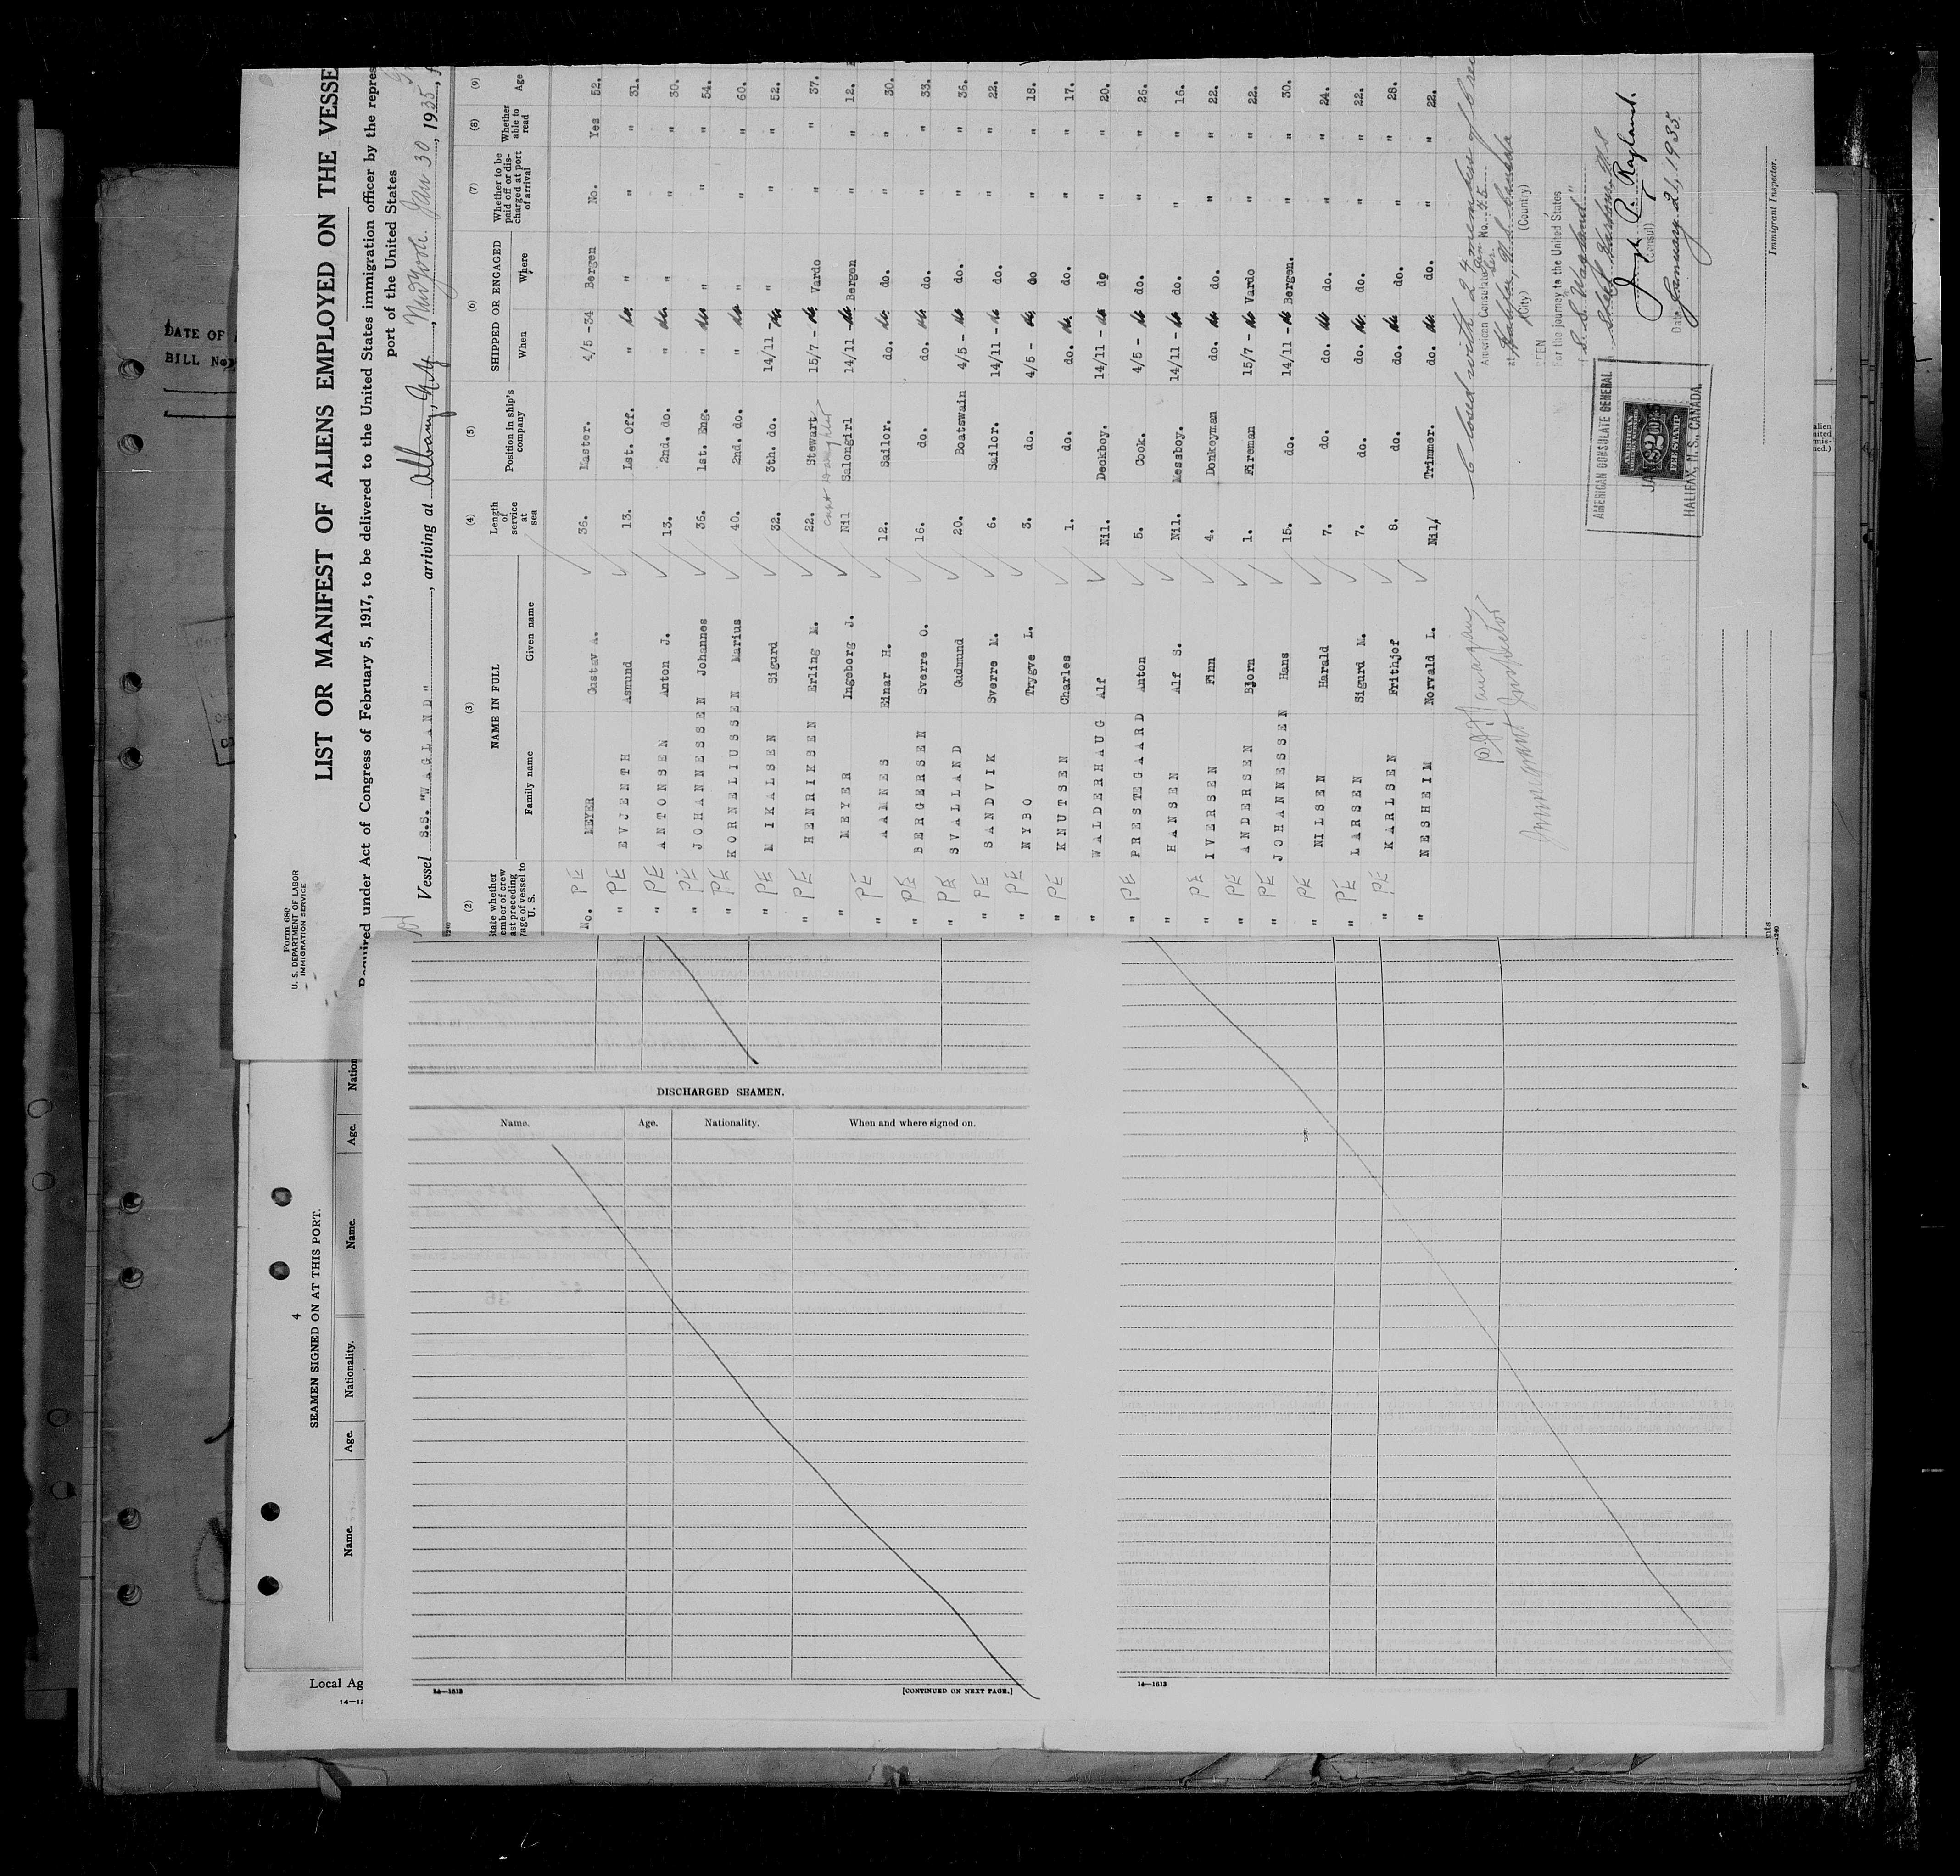 Form 680
U. S. DEPARTMENT OF LABOR
IMMIGRATION SERVICE
LIST OR MANIFEST OF ALIENS EMPLOYED ON THE VESSE
Required under Act of Congress of February 5, 1917, to be delivered to the United States immigration officer by the repres
port of the United States
Vessel S.S. "WAGLAND", arriving at Albany, N.Y., New York Jan 30, 1935, f
(2) (3) (4) (5) (6) (7) (8) (9)
State whether member of crew last preceding voyage of vessel to U. S.
NAME IN FULL
Family name Given name
Length of service at sea
Position in ship's company
SHIPPED OR ENGAGED
When Where
Whether to be paid off or discharged at port of arrival
Whether able to read
Age
No. PE MEYER Gustav A. 36. Master. 4/5 -34 Bergen No. Yes 52.
" PE EVJENTH Asmund 13. 1st. Off. " do. " " " 31.
" PE ANTONSEN Anton J. 13. 2nd. do. " do. " " " 30.
" PE JOHANNESSEN Johannes 36. 1st. Eng. " do. " " " 54.
" PE KORNELIUSSEN Marius 40. 2nd. do. " do. " " " 60.
" PE MIKALSEN Sigurd 32. 3th. do. 14/11 - do. " " " 52.
" PE HENRIKSEN Erling M. 22. Stewart 15/7 - do. Vardo " " 37.
Capt daughter
" MEYER Ingeborg J. Nil Salongirl 14/11 - do. Bergen " " 12.
" PE AAMNES Einar H. 12. Sailor. do. do. do. " " 30.
" PE BERGERSEN Sverre O. 16. do. do. do. do. " " 33.
" PE SVALLAND Gudmund 20. Boatswain 4/5 - do. do. " " 36.
" PE SANDVIK Sverre M. 6. Sailor. 14/11 - do. do. " " 22.
" PE NYBO Trygve L. 3. do. 4/5 - do. do " " 18.
" PE KNUTSEN Charles 1. do. do. do. do. " " 17.
" WALDERHAUG Alf Nil. Deckboy. 14/11 - do do " " 20.
" PE PRESTEGAARD Anton 5. Cook. 4/5 - do do. " " 26.
" HANSEN Alf S. Nil. Messboy. 14/11 - do do. " " 16.
" PE IVERSEN Finn 4. Donkeyman do. do. do. " " 22.
" PE ANDERSEN Bjorn 1. Fireman 15/7 - do Vardo " " 22.
" PE JOHANNESSEN Hans 15. do. 14/11 - do Bergen. " " 30.
" PE NILSEN Harald 7. do. do. do. do. " " 24.
" PE LARSEN Sigurd M. 7. do. do. do. do. " " 22.
" PE KARLSEN Frithjof 8. do. do. do. do. " " 28.
" NESHEIM Norvald L. Nil/ Trimmer. do. do. do. " " 22.
Closed with 24 members of crew
American Consulate
No. 45
at Halifax, N.S. Canada
(City) (Country)
SEEN
For the journey to the United States
S.S. Wagland"
Joseph P. Ragland.
(Consul)
Date January 21, 1935.
Immigrant Inspector
AMERICAN CONSULATE GENERAL
AMERICAN
$2
FEE STAMP
JA
HALIFAX, N.S., CANADA.
Immigrant Inspector.
DATE OF
BILL No
4
SEAMEN SIGNED ON AT THIS PORT.
Name. Age. Nationality. Name. Age. Nation
Local Ag
DISCHARGED SEAMEN.
Name. Age. Nationality. When and where signed on.
14—1613
[CONTINUED ON NEXT PAGE.]
14—1613